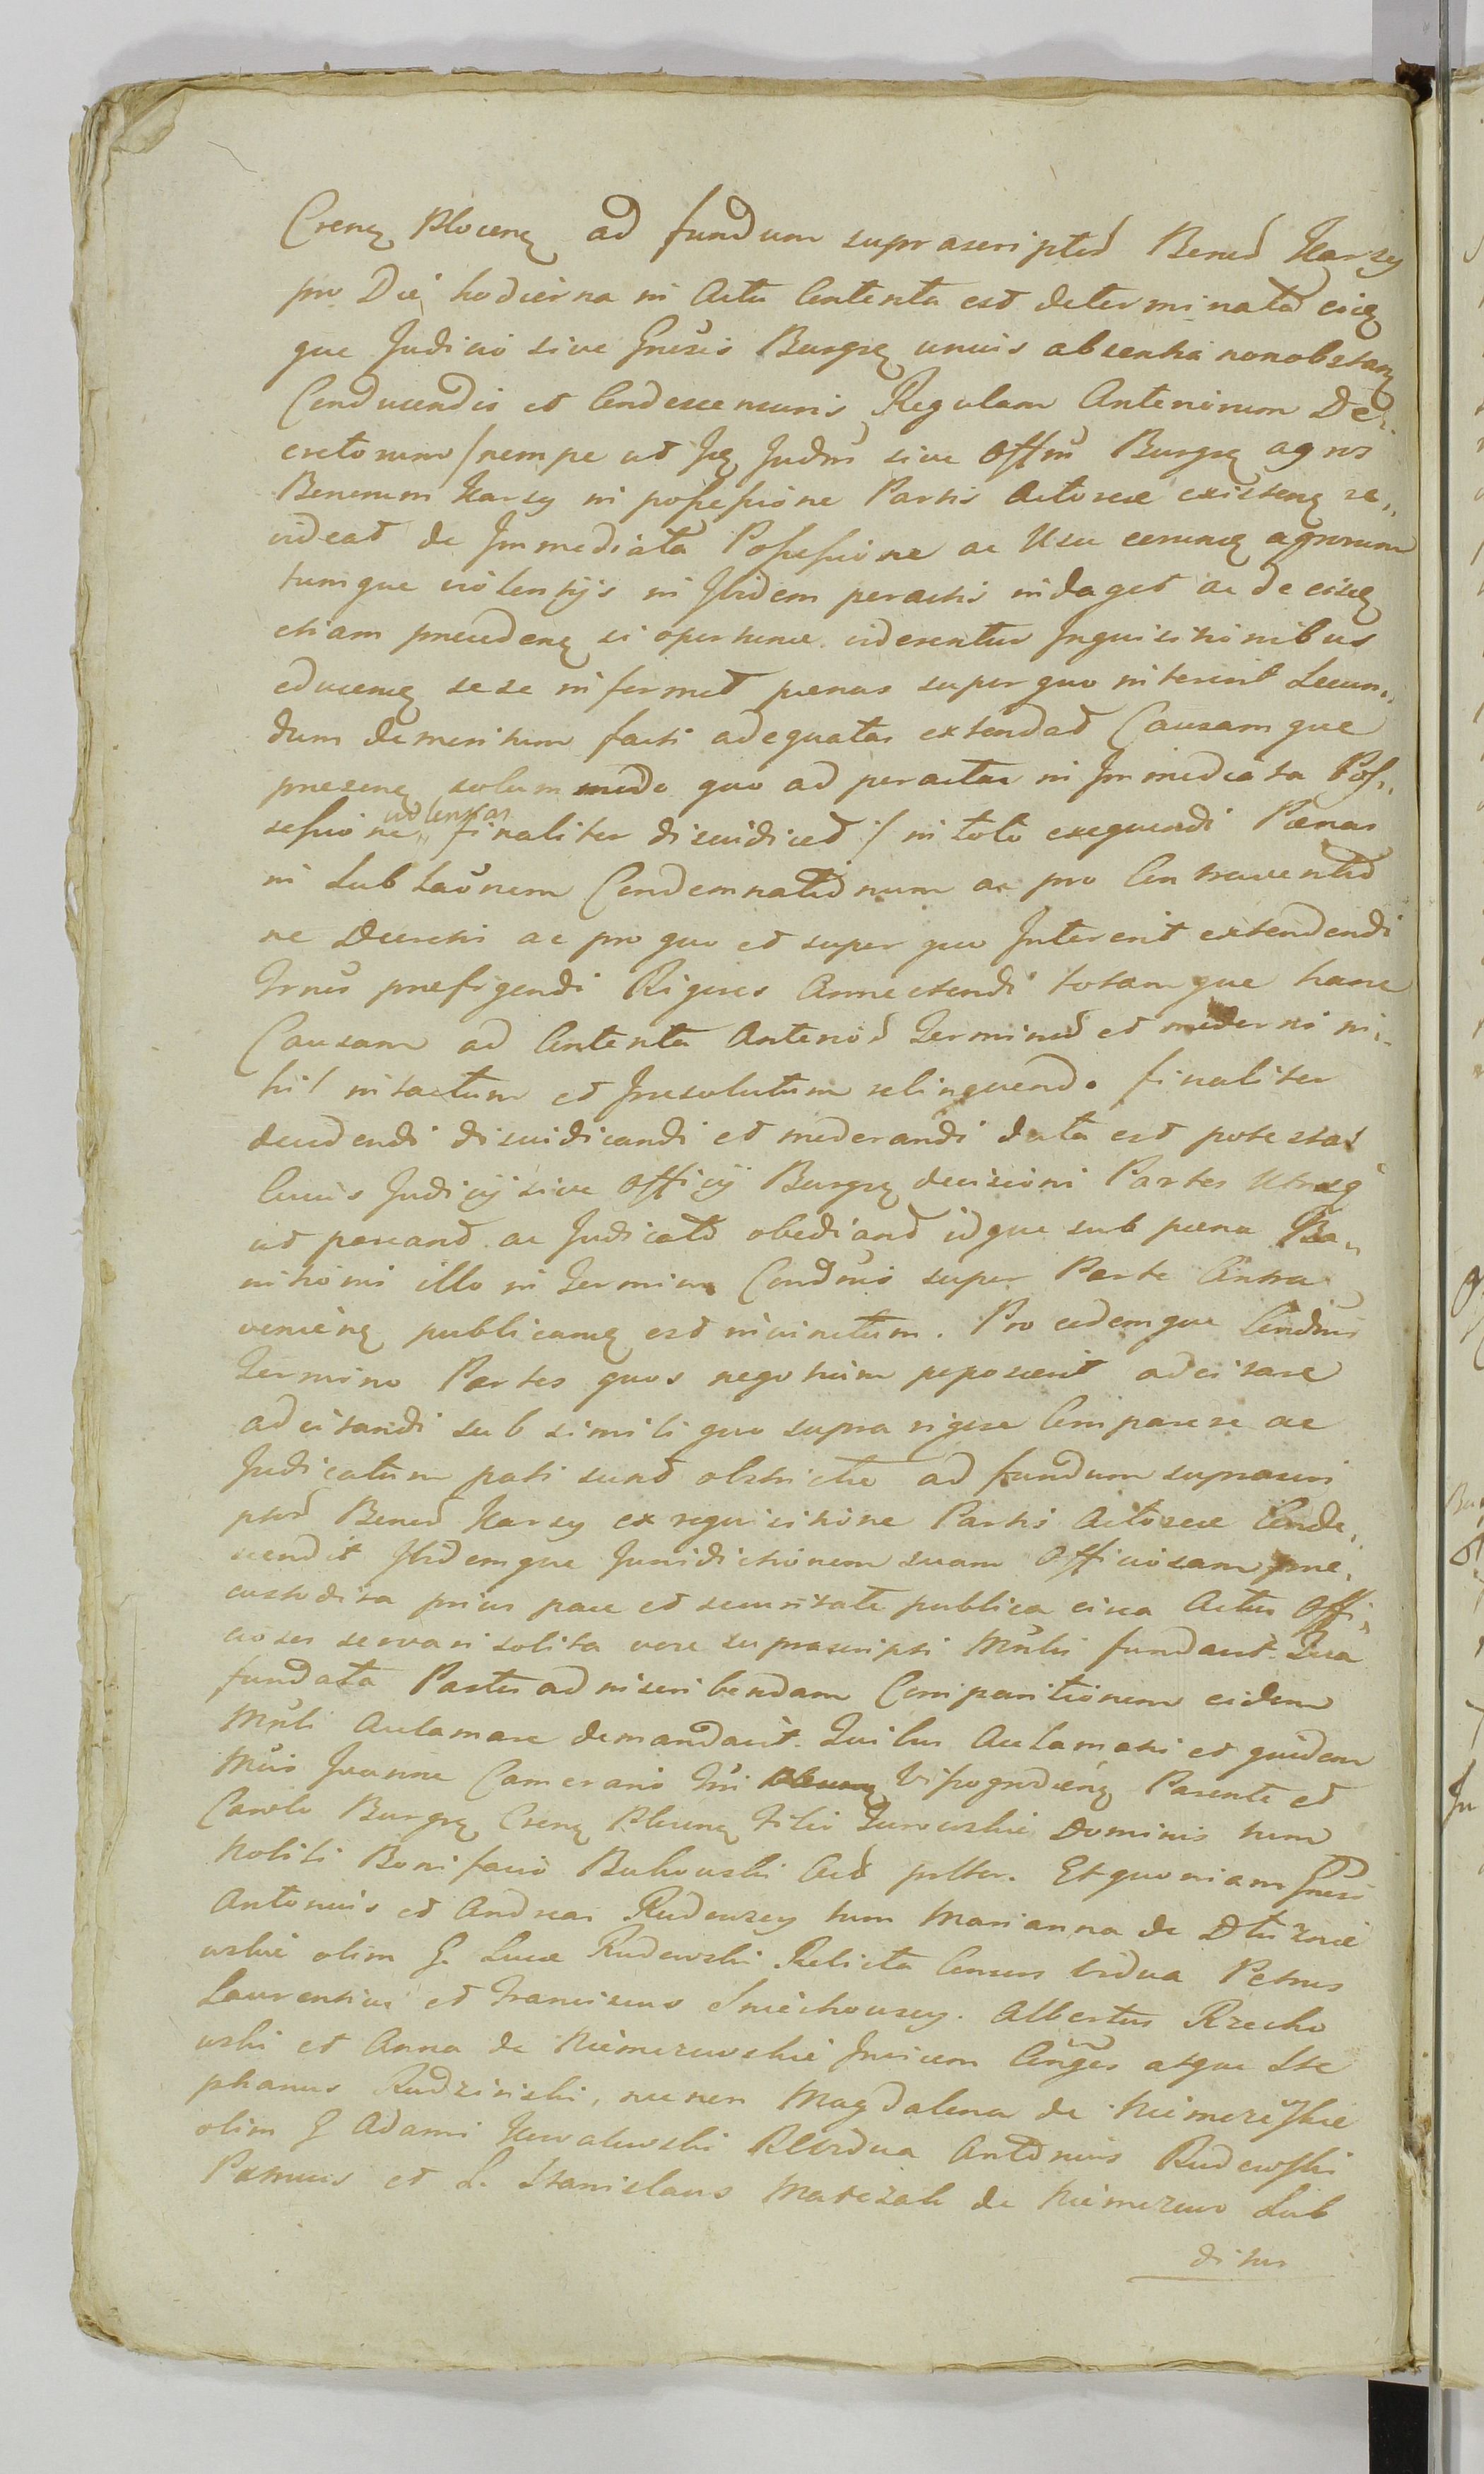 Crenẽ Plocenẽ ad fundum suprascriptoꝝ Bonoꝝ Karsy
pro Die hodierna in Actu Contenta est determinata eiiẽ
que Judicio sive Gnosis Burgrẽ unius absentia nonobstanẽ
Conducendis et Condescensuris Regulam Anteriorum De-
cretorum /nempe ut Jẽ Judm sive Offm Burgrẽ agros
Bonorum Karsy in possessione Partis Actoreae existenẽ re„
videat de Immediata Possessione ac Usu eorumẽ agrorum
tumque violentijs in Ibidem peractis indaget ac de eisdẽ
etiam praecedenẽ si oportunae viderentur Inquisitionibus
educenẽ sese informet paenas super quo intererit Secun„
dum demeritum facti adequatas extendat Causamque
presenẽ solummodo quo ad peractas in Immediata Pos„
sessione„ violentias finaliter dijudicet / in toto exequendi Paenas
in Sublaõnem Condemnationum ac pro Contraventio
ne Decreti ac pro quo et super quo Intererit extendendi
Trnos praefigendi Rigores Annectendi totamque hanc
Causam ad Contenta Anterioꝝ Terminoꝝ et moderni ni„
hil intactum et Irresolutum relinquendo finaliter
decidendi dijudicandi et moderandi data est potestas
Cuius Judicij sive Officij Burgrẽ decisioni Partes Utraeq
ut pareant ac Judicato obediant idque sub paena Ba„
nitionis illo in Termino Condnis super Parte Contra
venienẽ publicanẽ est invinctum. Pro eodemque Condnis
Termino Partes quos negotium poposcerit adcitare
adcitandi sub simili quo supra rigore Comparere ac
Judicatum pati sunt obstrictae ad fundum suprascri
ptoꝝ Bonoꝝ Karsy ex requisitione Partis Actoreae Conde„
scendit Ibidemque Jurisdictionem suam Officiosam prae„
custodita prius pace et securitate publica circa Actus Offi„
ciosos servari solita voce suprascripti Mnlis fundavit. Qua
fundata Partes ad inscribendam Comparitionem eidem
Mnli Acclamare demandavit. Quibus Acclamatis et quidem
Mcis Joanne Camerario Tni Visogrodienẽ Parente et
Carolo Burgrẽ Crenẽ Plocenẽ Filio Turowskie Dominis tum
Nobili Bonifacio Bukowski Act pltter. Et quoniam Gnosi
Antonius et Andreas Rudowscy tum Marianna de Dłuzowie
wskie olim G. Lucae Rudowski Relicta Consors Vidua Petrus
Laurentius et Franciscus Smiechowscy. Albertus Rzecho
wski et Anna de Niemierzewskie Invicem Conges atque Ste
phanus Rudzinski, nec non Magdalena de Niemierzewskie
olim G Adami Kowalewski Rlta Vidua Antonius Rudowski
Patruus et L. Stanislaus Matczak de Niemierzewo Sub
ditus